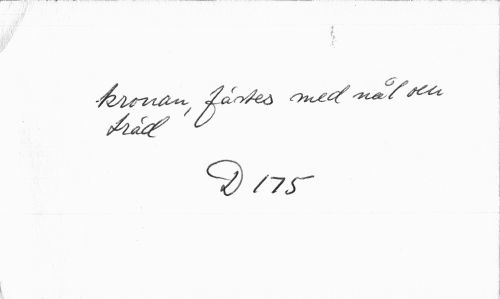 kronan, fästes med nål och
tråd
D 175